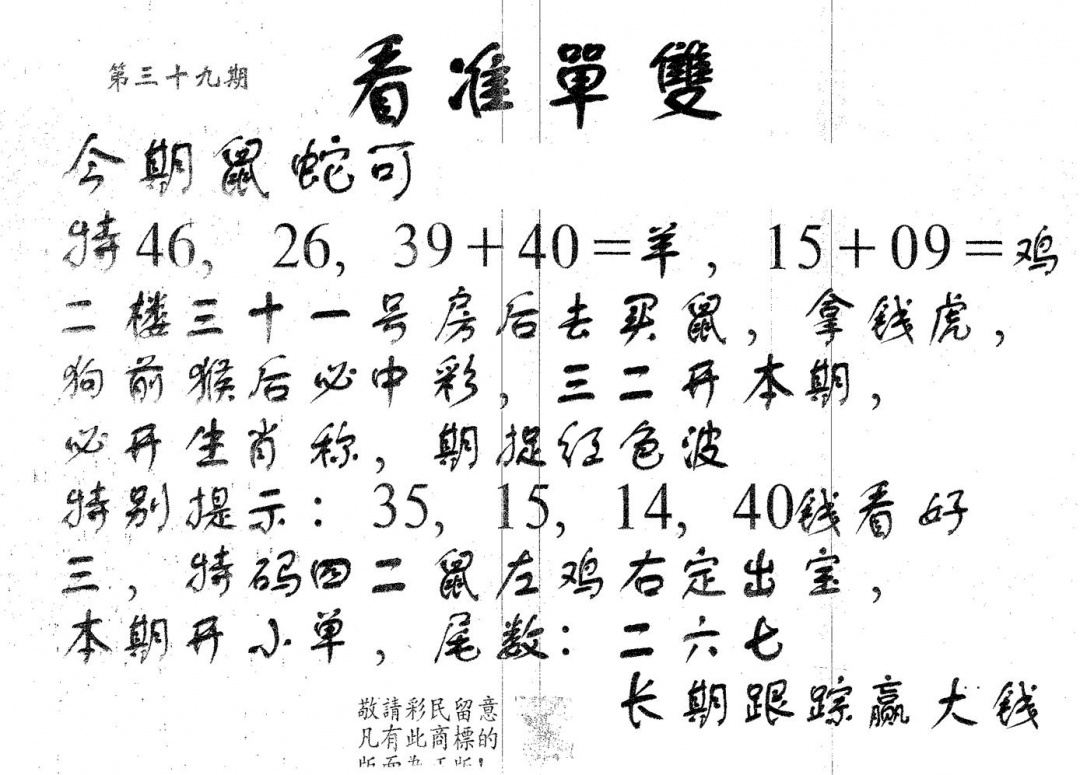 第三十九期
看准單雙
今期鼠蛇可
特46, 26, 39+40=羊, 15+09=鸡
二楼三十一号房后去买鼠, 拿钱虎,
狗前猴后必中彩, 三二开本期,
必开生肖称, 期捉红色波
特别提示: 35, 15, 14, 40钱看好
三, 特码四二鼠左鸡右定出宝,
本期开小单, 尾数: 二六七
长期跟踪赢大钱
敬請彩民留意
凡有此商標的
版面为正版!